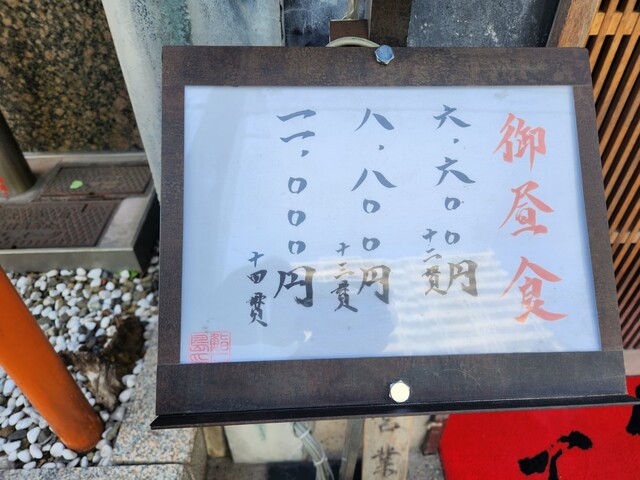 御昼食
六、六〇〇円
十二貫
八、八〇〇円
十二貫
一一、〇〇〇円
十四貫
営業